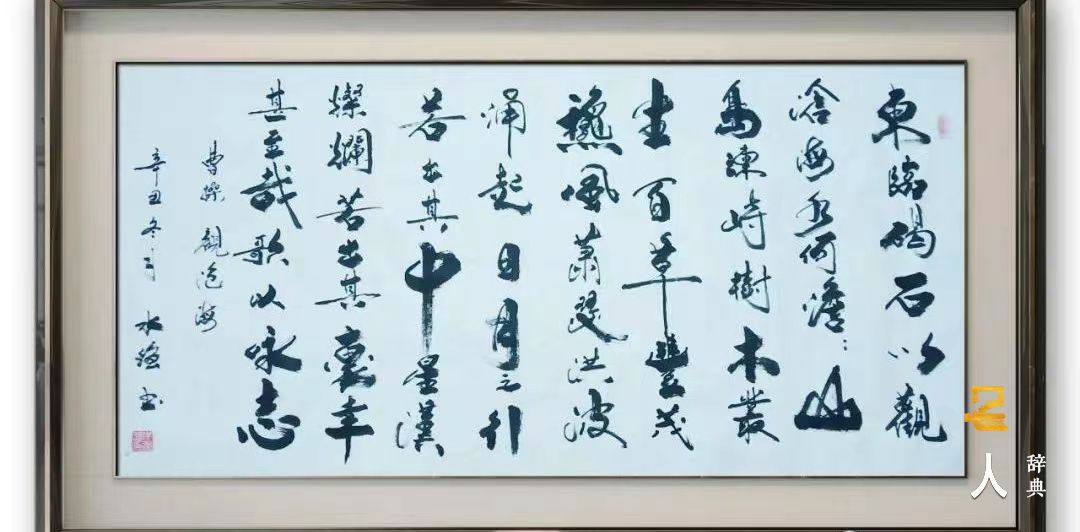 東臨碣石以觀
滄海水何澹〻山
島竦峙樹木叢
生百草豐茂
龝風蕭瑟洪波
涌起日月之行
若出其中星漢
燦爛若出其裏幸
甚至哉歌以咏志
曹操 觀滄海
辛丑冬月 书
名人
辞典